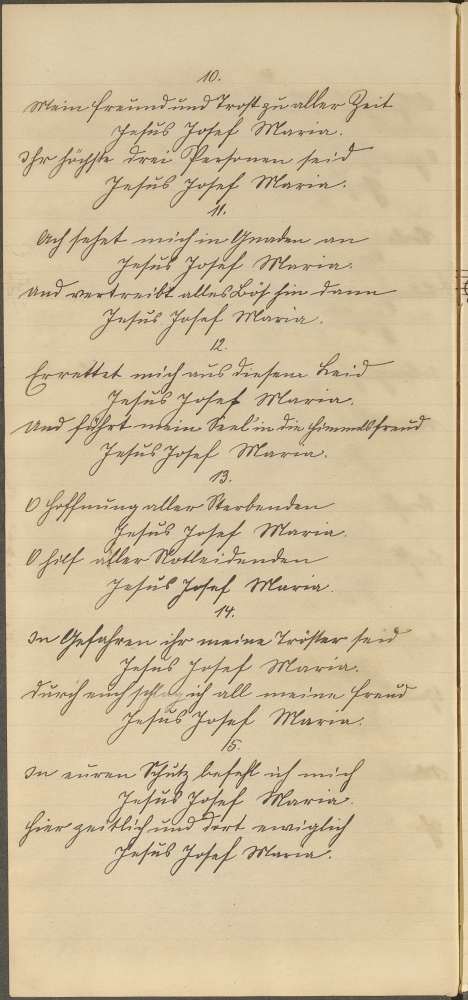 10.
Mein Freund und Trost zu aller Zeit
Jesus Josef Maria.
Ihr höchste drei Personen seid
Jesus Josef Maria.
11.
Ach sehet mich in Gnaden an
Jesus Josef Maria.
Und vertreibt alles Bös hin dann
Jesus Josef Maria.
12.
Errettet mich aus diesem Leid
Jesus Josef Maria.
Und führt mein Seel' in die Himmelsfreud
Jesus Josef Maria.
13.
O Hoffnung aller Sterbenden
Jesus Josef Maria.
O hilf aller Notleidenden
Jesus Josef Maria.
14.
In Gefahren ihr meine Tröster seid
Jesus Josef Maria.
Durch euch ich all meine Freud
Jesus Josef Maria.
15.
In euren Schutz befehl ich mich
Jesus Josef Maria.
Hier zeitlich und dort ewiglich
Jesus Josef Maria.